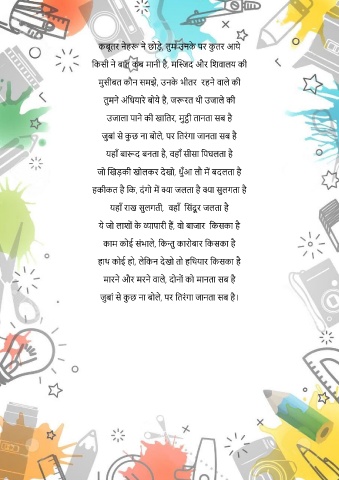 कबूतर नेहरू ने छोड़े, तुम उनके पर कुतर आये
किसी ने बात कब मानी है, मस्जिद और शिवालय की
मुसीबत कौन समझे, उनके भीतर रहने वाले की
तुमने अंधियारे बोये है, जरूरत थी उजाले की
उजाला पाने की खातिर, मुट्ठी तानता सब है
जुबां से कुछ ना बोले, पर तिरंगा जानता सब है
यहाँ बारूद बनता है, वहाँ सीसा पिघलता है
जो खिड़की खोलकर देखो, धुँआ लौ में बदलता है
हकीकत है कि, दंगो में क्या जलता है क्या सुलगता है
यहाँ राख सुलगती, वहाँ सिंदूर जलता है
ये जो लाशों के व्यापारी हैं, वो बाजार किसका है
काम कोई संभाले, किन्तु कारोबार किसका है
हाथ कोई हो, लेकिन देखो तो हथियार किसका है
मारने और मरने वाले, दोनों को मानता सब है
जुबां से कुछ ना बोले, पर तिरंगा जानता सब है।